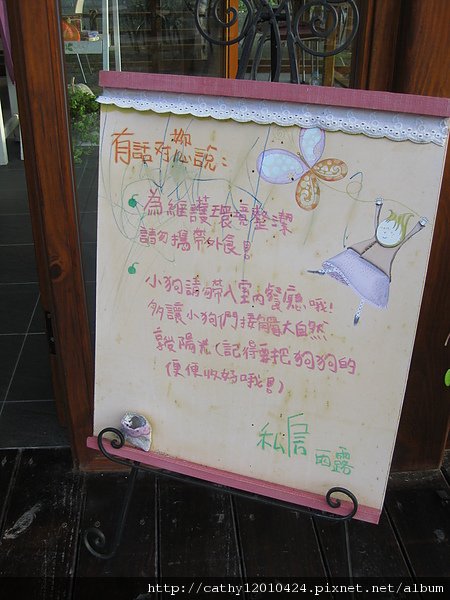 有話對您說：
為維護環境整潔
請勿攜帶外食！
小狗請勿帶入室內餐廳哦！
多讓小狗們接觸大自然
享受陽光（記得要把狗狗的
便便收好哦！）
私房雨露
http://cathy12010424.pixnet.net/album